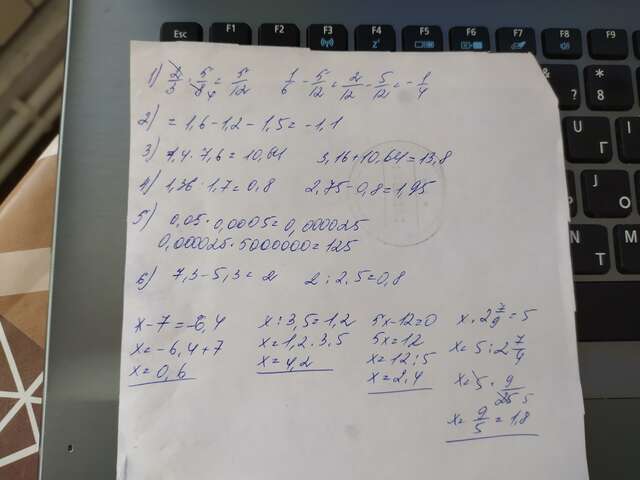 Esc F1 F2 F3 F4 F5 F6 F7 F8
1) 2/3 · 5/8 = 5/12   1/6 - 5/12 = 2/12 - 5/12 = -1/4
2) = 1,6 - 1,2 - 1,5 = -1,1
3) 1,4 · 7,6 = 10,64   3,16 + 10,64 = 13,8
4) 1,36 : 1,7 = 0,8   2,75 - 0,8 = 1,95
5) 0,05 · 0,0005 = 0,000025
0,000025 · 5000000 = 125
6) 7,3 - 5,3 = 2   2 : 2,5 = 0,8
x - 7 = -6,4
x = -6,4 + 7
x = 0,6
x : 3,5 = 1,2
x = 1,2 · 3,5
x = 4,2
5x - 12 = 0
5x = 12
x = 12 : 5
x = 2,4
x · 2 7/9 = 5
x = 5 : 2 7/9
x = 5 · 9/25 5
x = 9/5 = 1,8